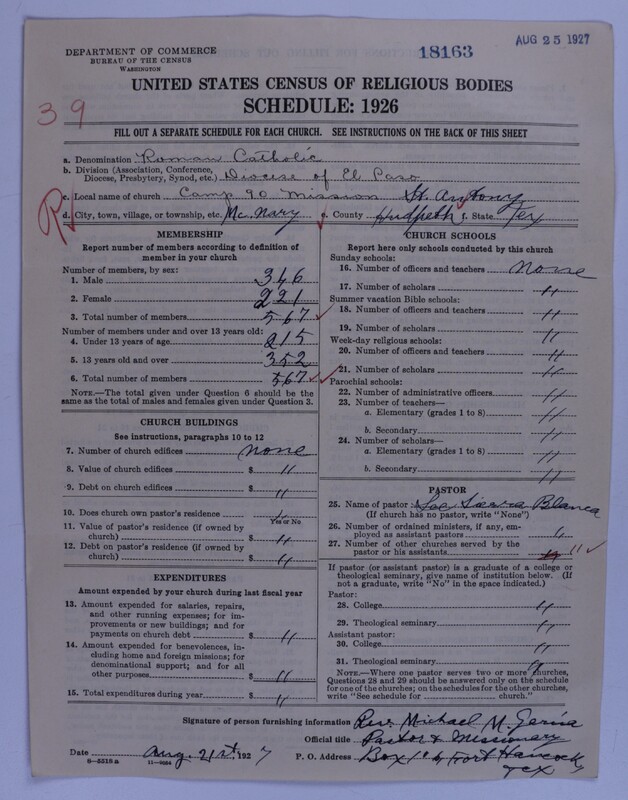 DEPARTMENT OF COMMERCE
BUREAU OF THE CENSUS
WASHINGTON
18163
AUG 25 1927
UNITED STATES CENSUS OF RELIGIOUS BODIES
SCHEDULE: 1926
39
FILL OUT A SEPARATE SCHEDULE FOR EACH CHURCH. SEE INSTRUCTIONS ON THE BACK OF THIS SHEET
a. Denomination Roman Catholic
b. Division (Association, Conference, Diocese, Presbytery, Synod, etc.) Diocese of El Paso
c. Local name of church Camp 90 Mission St. Antony
R
d. City, town, village, or township, etc. Mc. Nary e. County Hudpeth f. State Tex
MEMBERSHIP
Report number of members according to definition of
member in your church
Number of members, by sex:
1. Male 346
2. Female 221
3. Total number of members 567
Number of members under and over 13 years old:
4. Under 13 years of age 215
5. 13 years old and over 352
6. Total number of members 567
NOTE.—The total given under Question 6 should be
the same as the total of males and females given under Question 3.
CHURCH BUILDINGS
See instructions, paragraphs 10 to 12
7. Number of church edifices none
8. Value of church edifices $ "
9. Debt on church edifices $ "
10. Does church own pastor's residence "
Yes or No
11. Value of pastor's residence (if owned by
church) $ "
12. Debt on pastor's residence (if owned by
church) $ "
EXPENDITURES
Amount expended by your church during last fiscal year
13. Amount expended for salaries, repairs,
and other running expenses; for im-
provements or new buildings; and for
payments on church debt $ "
14. Amount expended for benevolences, in-
cluding home and foreign missions; for
denominational support; and for all
other purposes $ "
15. Total expenditures during year $ "
CHURCH SCHOOLS
Report here only schools conducted by this church
Sunday schools:
16. Number of officers and teachers none
17. Number of scholars "
Summer vacation Bible schools:
18. Number of officers and teachers "
19. Number of scholars "
Week-day religious schools:
20. Number of officers and teachers "
21. Number of scholars "
Parochial schools:
22. Number of administrative officers "
23. Number of teachers—
a. Elementary (grades 1 to 8) "
b. Secondary "
24. Number of scholars—
a. Elementary (grades 1 to 8) "
b. Secondary "
PASTOR
25. Name of pastor: See Sierra Blanca
(If church has no pastor, write "None")
26. Number of ordained ministers, if any, em-
ployed as assistant pastors "
27. Number of other churches served by the
pastor or his assistants 11
If pastor (or assistant pastor) is a graduate of a college or
theological seminary, give name of institution below. (If
not a graduate, write "No" in the space indicated.)
Pastor:
28. College "
29. Theological seminary "
Assistant pastor:
30. College "
31. Theological seminary "
NOTE.—Where one pastor serves two or more churches,
Questions 28 and 29 should be answered only on the schedule
for one of the churches; on the schedules for the other churches,
write "See schedule for church.")
Signature of person furnishing information Rev. Michael M.
Official title Pastor & Missionary
Date Aug. 21st, 1927 P. O. Address Box Fort Hancock
Tex
8—5318 a